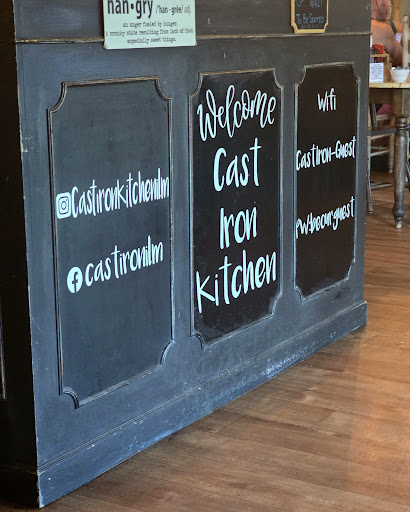 han·gry /'han - grēe/ adj.
an anger fueled by hunger.
a cranky state resulting from lack of food
especially sweet things.
To Be Seated
Castironkitchenilm
castironilm
Welcome
Cast
Iron
Kitchen
Wifi
CastIron-Guest
PW:becurguest